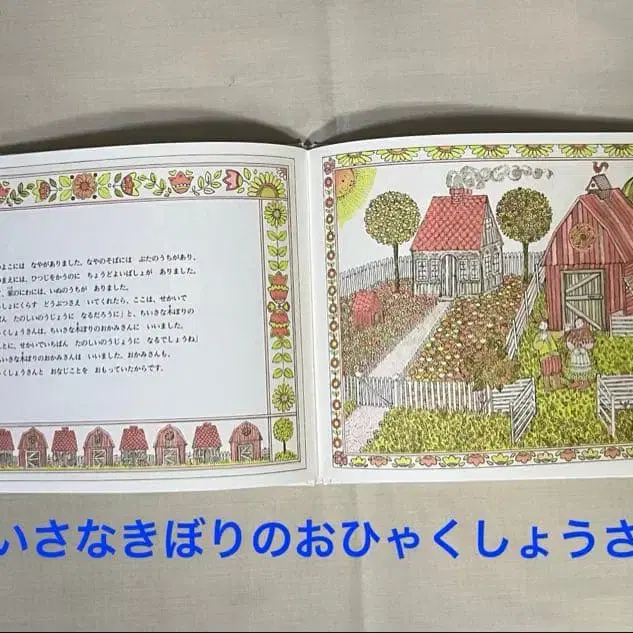 のよこには なやがありました。なやのそばには ぶたのうちがあり、
まえには、ひつじをかうのに ちょうどよいばしょが ありました。
、家のにわには、いぬのうちが ありました。
しょにくらす どうぶつさえ いてくれたら、ここは、せかいで
ばん たのしいのうじょうに なるだろうに」と、ちいさな木ぼりの
くしょうさんは、ちいさな木ぼりのおかみさんに いいました。
とに、せかいでいちばん たのしいのうじょうに なるでしょうね」
ちいさな木ぼりのおかみさんは いいました。おかみさんも、
ゃくしょうさんと おなじことを おもっていたからです。
いさなきぼりのおひゃくしょうさ